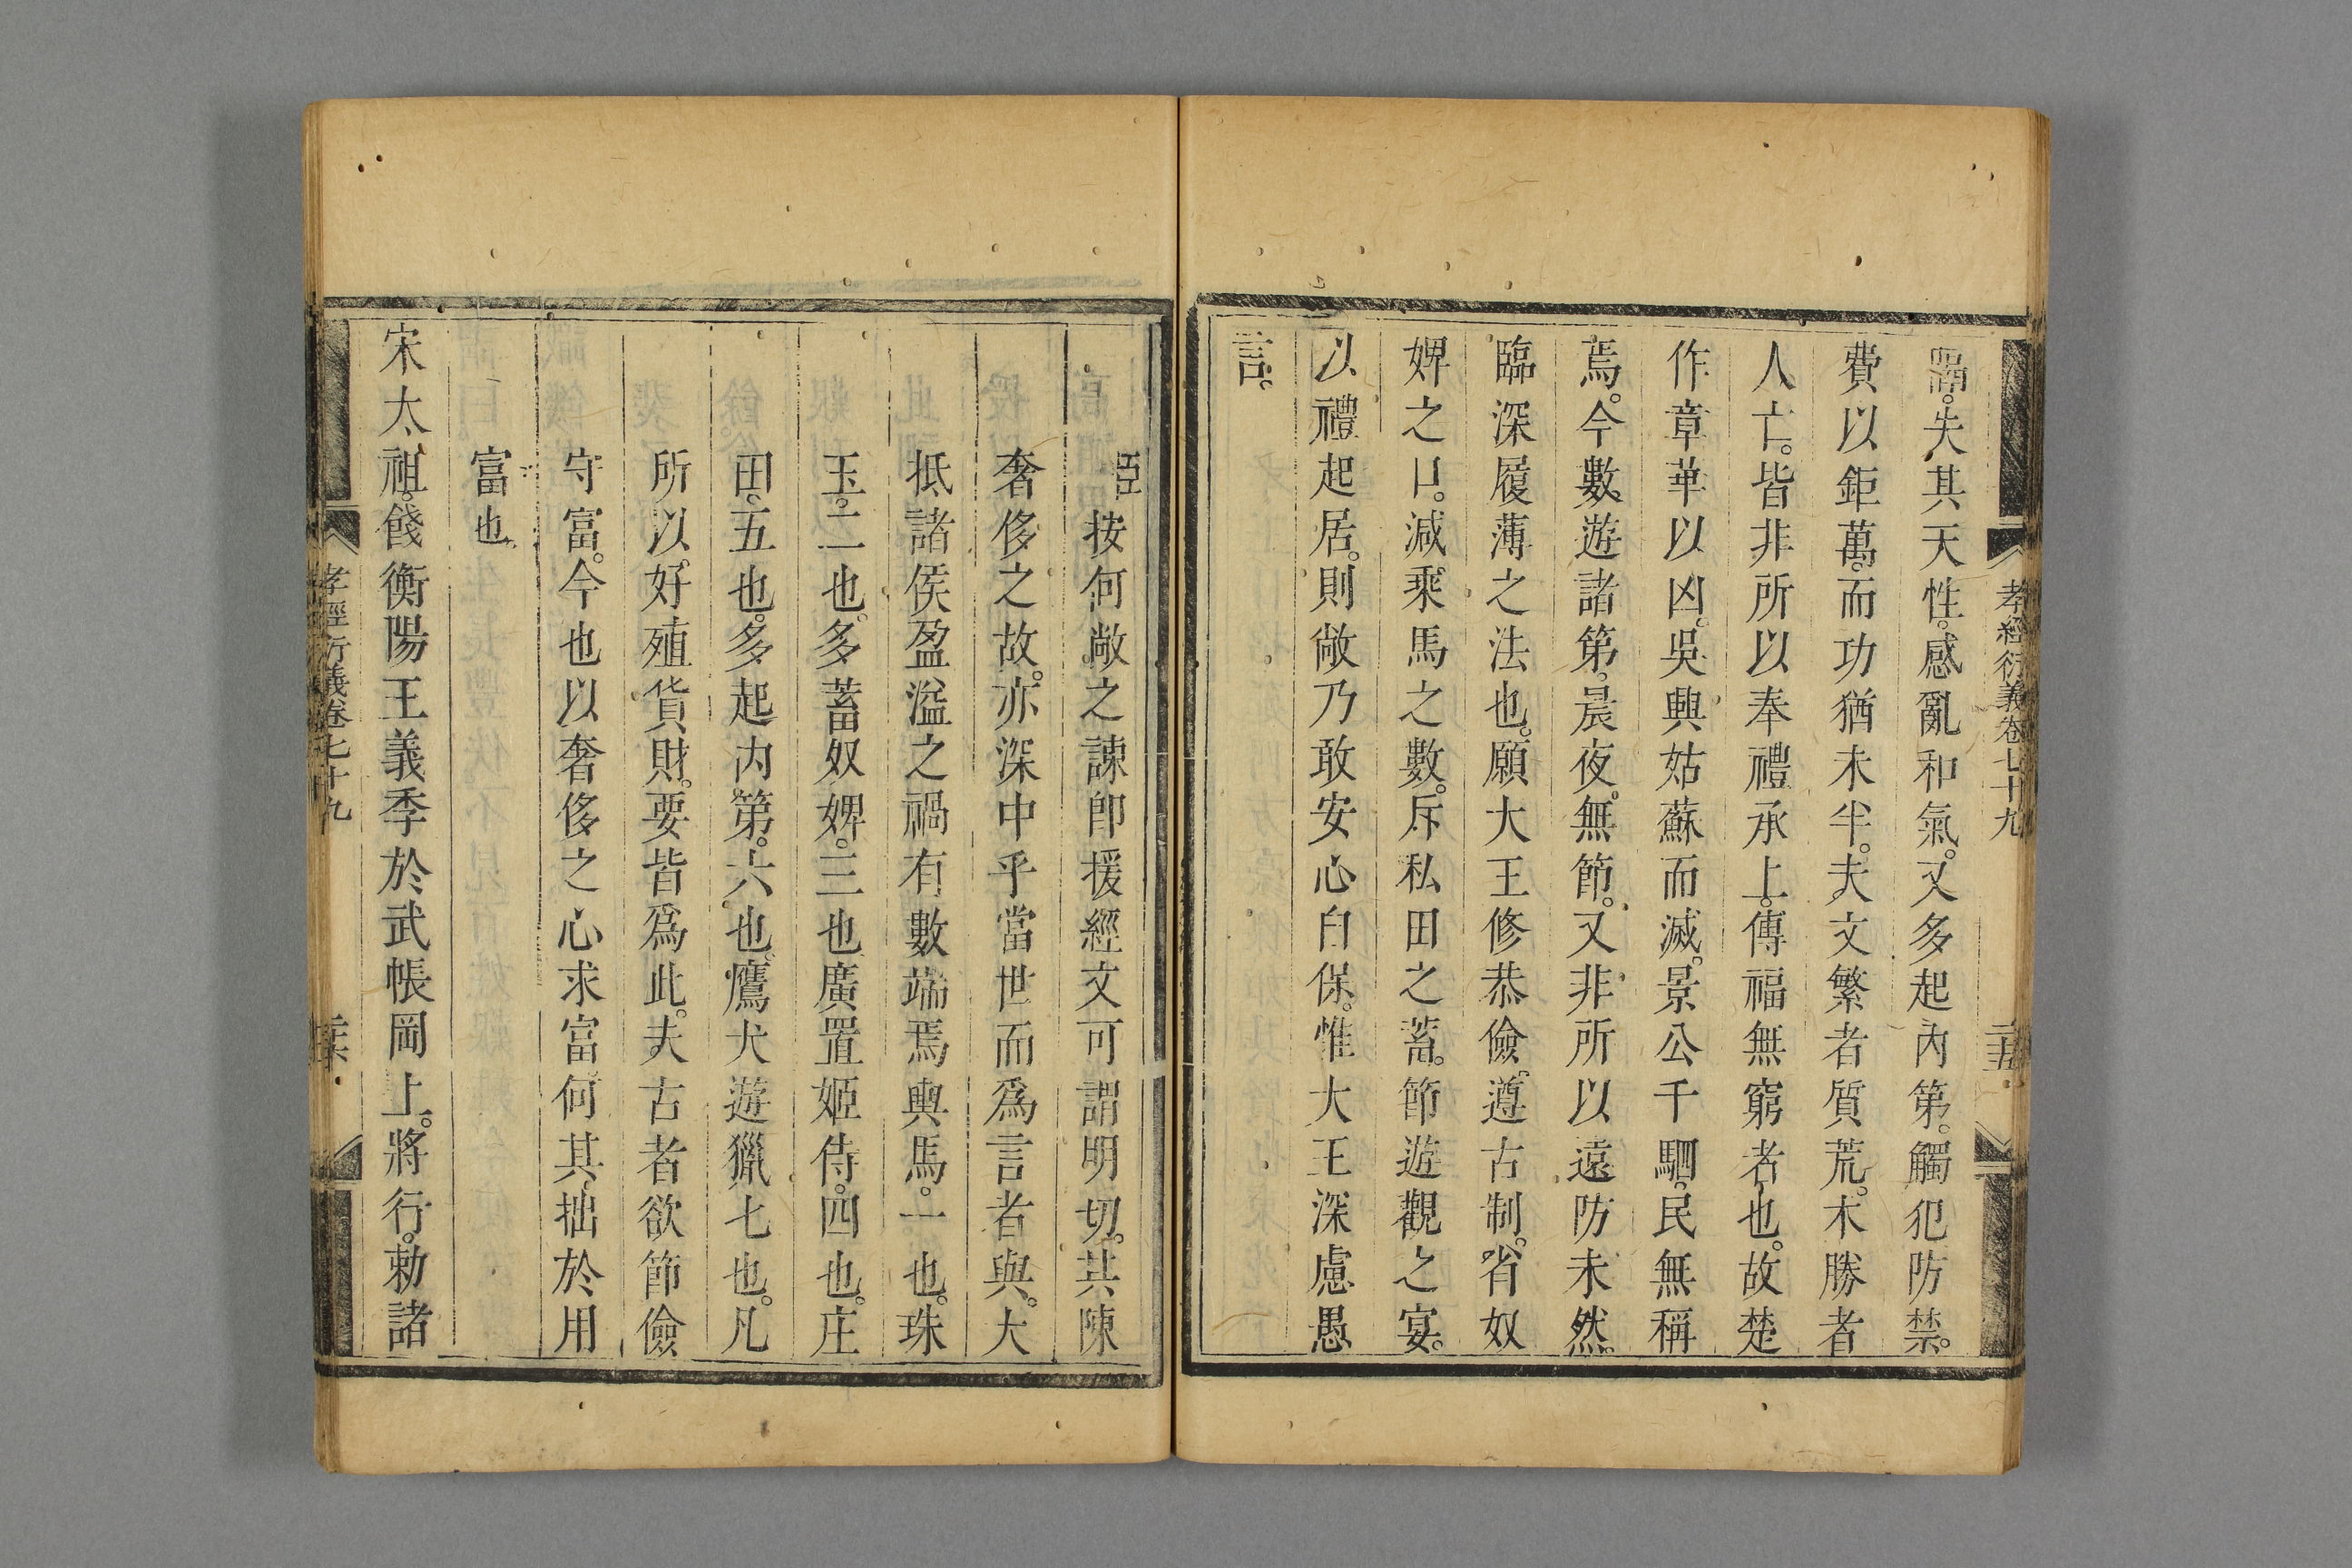 孝經衍義卷七十九
二十五
隔失其天性感亂和氣又多起內第觸犯防禁
費以鉅萬而功猶未半夫文繁者質荒木勝者
人亡皆非所以奉禮承上傳福無窮者也故楚
作章華以凶吳興姑蘇而滅景公千駟民無稱
焉今數遊諸第晨夜無節又非所以遠防未然
臨深履薄之法也願大王修恭儉遵古制省奴
婢之口減乘馬之數斥私田之蓄節遊觀之宴
以禮起居則敞乃敢安心自保惟大王深慮愚
言
臣按何敞之諫卽援經文可謂明切其陳
奢侈之故亦深中乎當世而爲言者與大
抵諸侯盈溢之禍有數端焉輿馬一也珠
玉二也多蓄奴婢三也廣置姬侍四也庄
田五也多起內第六也鷹犬遊獵七也凡
所以好殖貨財要皆爲此夫古者欲節儉
守富今也以奢侈之心求富何其拙於用
富也
宋太祖餞衡陽王義季於武帳岡上將行勅諸
孝經衍義卷七十九